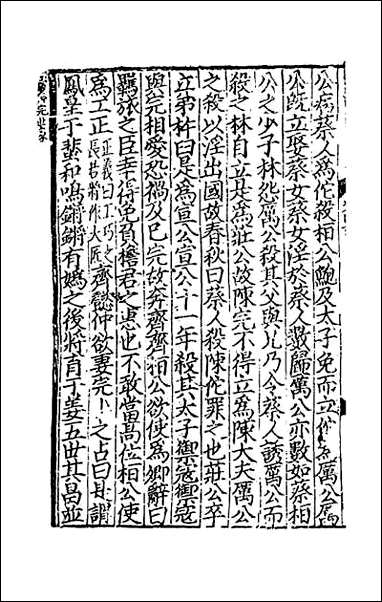 公病蔡人爲佗殺桓公鮑及太子免而立佗爲厲公厲
公旣立娶蔡女蔡女淫於蔡人數歸厲公亦數如蔡桓
公之少子林怨厲公殺其父與兄乃令蔡人誘厲公而
殺之林自立是爲莊公故陳完不得立爲陳大夫厲公
之殺以淫出國故春秋曰蔡人殺陳佗罪之也莊公卒
立弟杵臼是爲宣公宣公二十一年殺其太子禦寇禦寇
與完相愛恐禍及己完故奔齊齊桓公欲使爲卿辭曰
羈旅之臣幸得免負檐君之惠也不敢當高位桓公使
爲工正正義曰工巧之長若將作大匠齊懿仲欲妻完卜之占曰是謂
鳳皇于蜚和鳴鏘鏘有嬀之後將育于姜五世其昌並